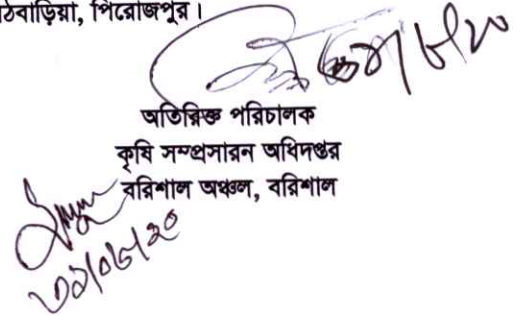 ঠবাড়িয়া, পিরোজপুর।
অতিরিক্ত পরিচালক
কৃষি সম্প্রসারন অধিদপ্তর
বরিশাল অঞ্চল, বরিশাল